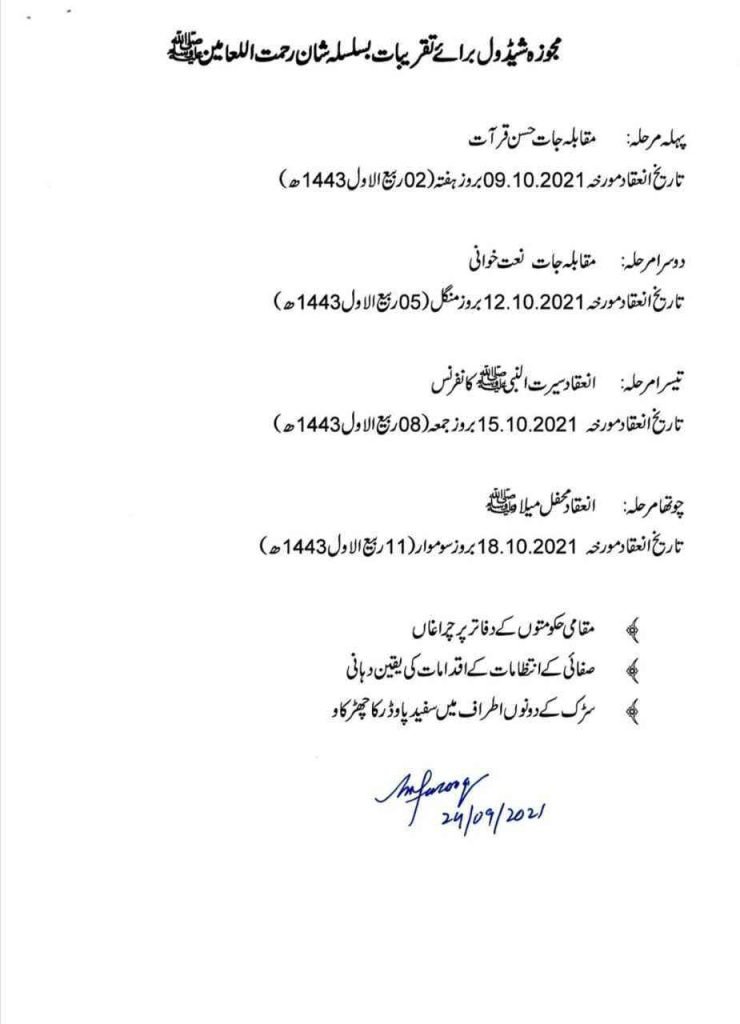 مجوزہ شیڈول برائے تقریبات بسلسلہ شان رحمت اللعامین ﷺ
پہلہ مرحلہ: مقابلہ جات حسن قرآت
تاریخ انعقاد مورخہ 09.10.2021 بروز ہفتہ (02 ربیع الاول 1443ھ)
دوسرا مرحلہ: مقابلہ جات نعت خوانی
تاریخ انعقاد مورخہ 12.10.2021 بروز منگل (05 ربیع الاول 1443ھ)
تیسرا مرحلہ: انعقاد سیرت النبی ﷺ کانفرنس
تاریخ انعقاد مورخہ 15.10.2021 بروز جمعہ (08 ربیع الاول 1443ھ)
چوتھا مرحلہ: انعقاد محفل میلا ﷺ
تاریخ انعقاد مورخہ 18.10.2021 بروز سوموار (11 ربیع الاول 1443ھ)
مقامی حکومتوں کے دفاتر پر چراغاں
صفائی کے انتظامات کے اقدامات کی یقین دہانی
سڑک کے دونوں اطراف میں سفید پاوڈر کا چھڑکاو
24/09/2021